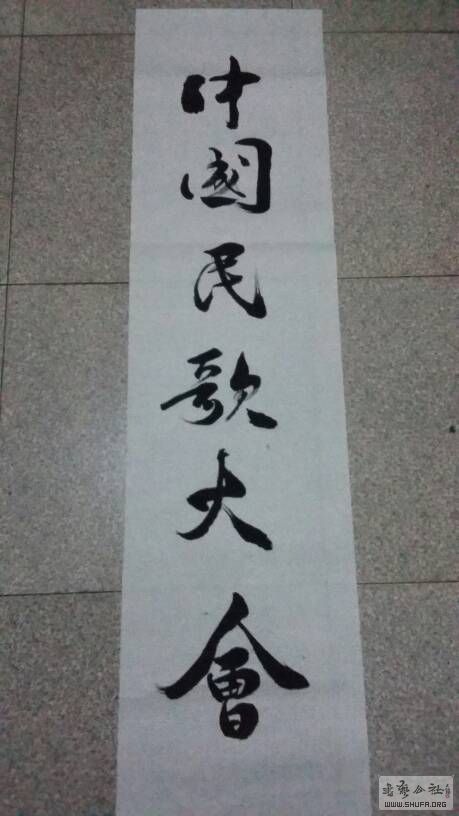 中國民歌大會
WWW.SHUFA.ORG